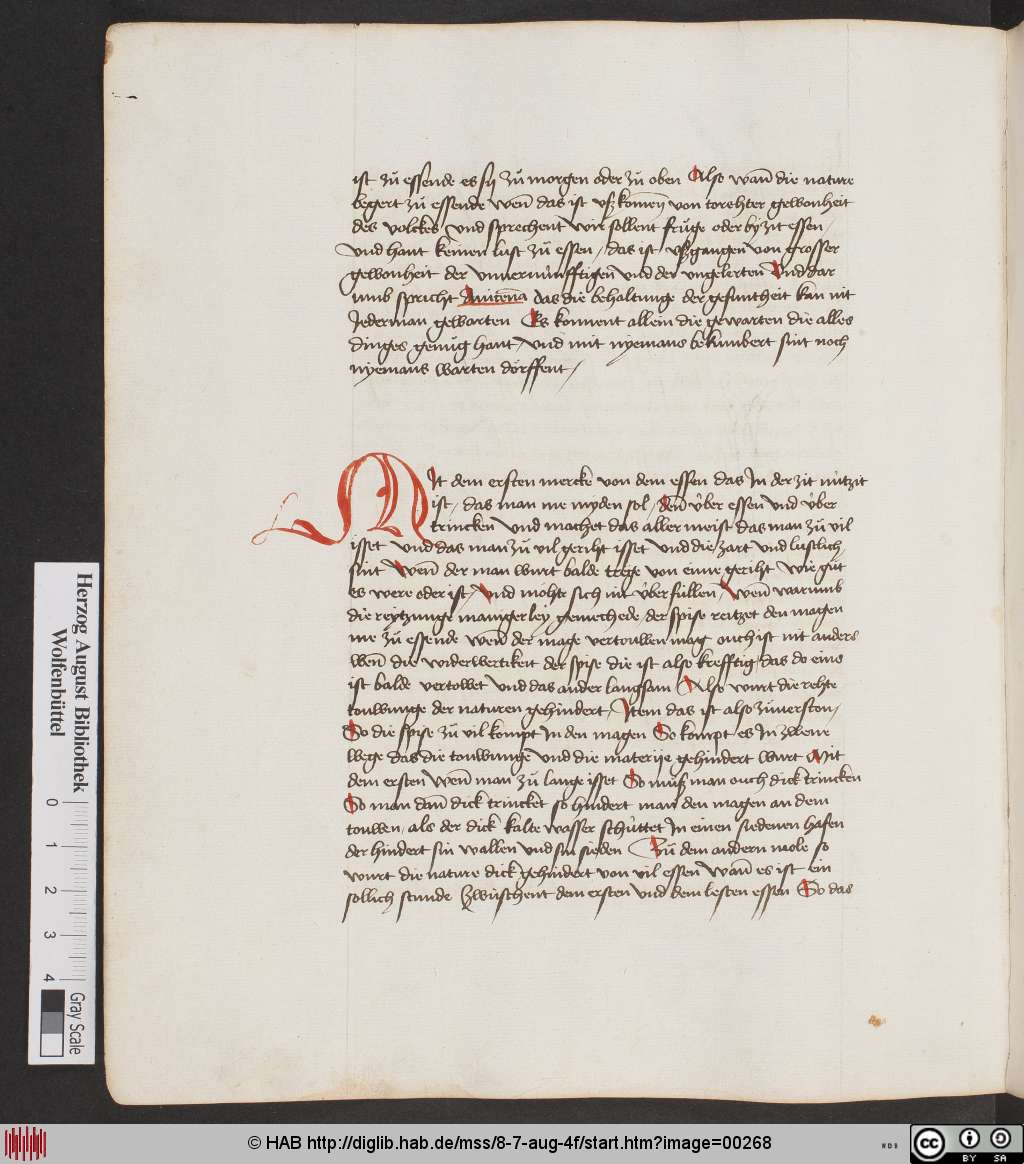 ist zů essende es sÿ zů morgen oder zů oben Also wan̄ die nature
begert zů essende wen̄ das ist vßkomen von torehter gewonheit
des volckes vnd sprechent wir sollent frůge oder byzit essen /
vnd hant keinen lust zů essen / das ist vßgangen von grosser
gewonheit der vnuernúnfftigen vnd der vngelerten Vnd dar
vmb spricht Auicen̄a das die behaltunge der gesuntheit kan nit
Jederman gewarten Es konnent allein die gewarten die alles
dinges genůg hant / vnd mit nyemans bekúnbert sint noch
nyemans warten dörffent /
MIt dem ersten mercke von dem essen das In der zit nútzit
ist / das man me myden sol / den̄ v́ber essen vnd v́ber
trincken vnd machet das aller meist das man zů vil
isset vnd das man zů vil geriht isset vnd die zart vnd lustlich
sint Wen̄ der man wurt balde trege von eime geriht wie gůt
es were oder ist / Vnd möhte sich nit v́berfúllen / Wen̄ warumb
die reytzunge maniger ley gemechede / der spise reitzet den magen
me zů essende wen̄ der mage vertouwen mag ouch ist nit anders
wen̄ die widerwertikeit der spise die ist also krefftig das do eins
ist balde vertowet vnd das ander langsam Also wurt die rehte
touwunge der naturen gehindert / Item das ist also zůuerston /
So die spise zů vil kompt In den magen So kompt es In zwene
wege das die touwunge vnd die materije gehindert wurt Mit
dem ersten wen̄ man zů lange isset So můß man ouch dick trincken
So man dan̄ dick trincket so hindert man den magen an dem
touwen / als der dick kalte wasser schúttet In einen siedenen hafen
der hindert sin wallen vnd sin sieden Zů dem andern mole so
wurt die nature dick gehindert von vil essen wan̄ es ist ein
sollich stunde Zwúschent dem ersten vnd dem lesten essen So das
Herzog August Bibliothek
Wolfenbüttel
0 1 2 3 4
Gray Scale
© HAB http://diglib.hab.de/mss/8-7-aug-4f/start.htm?image=00268
cc BY SA